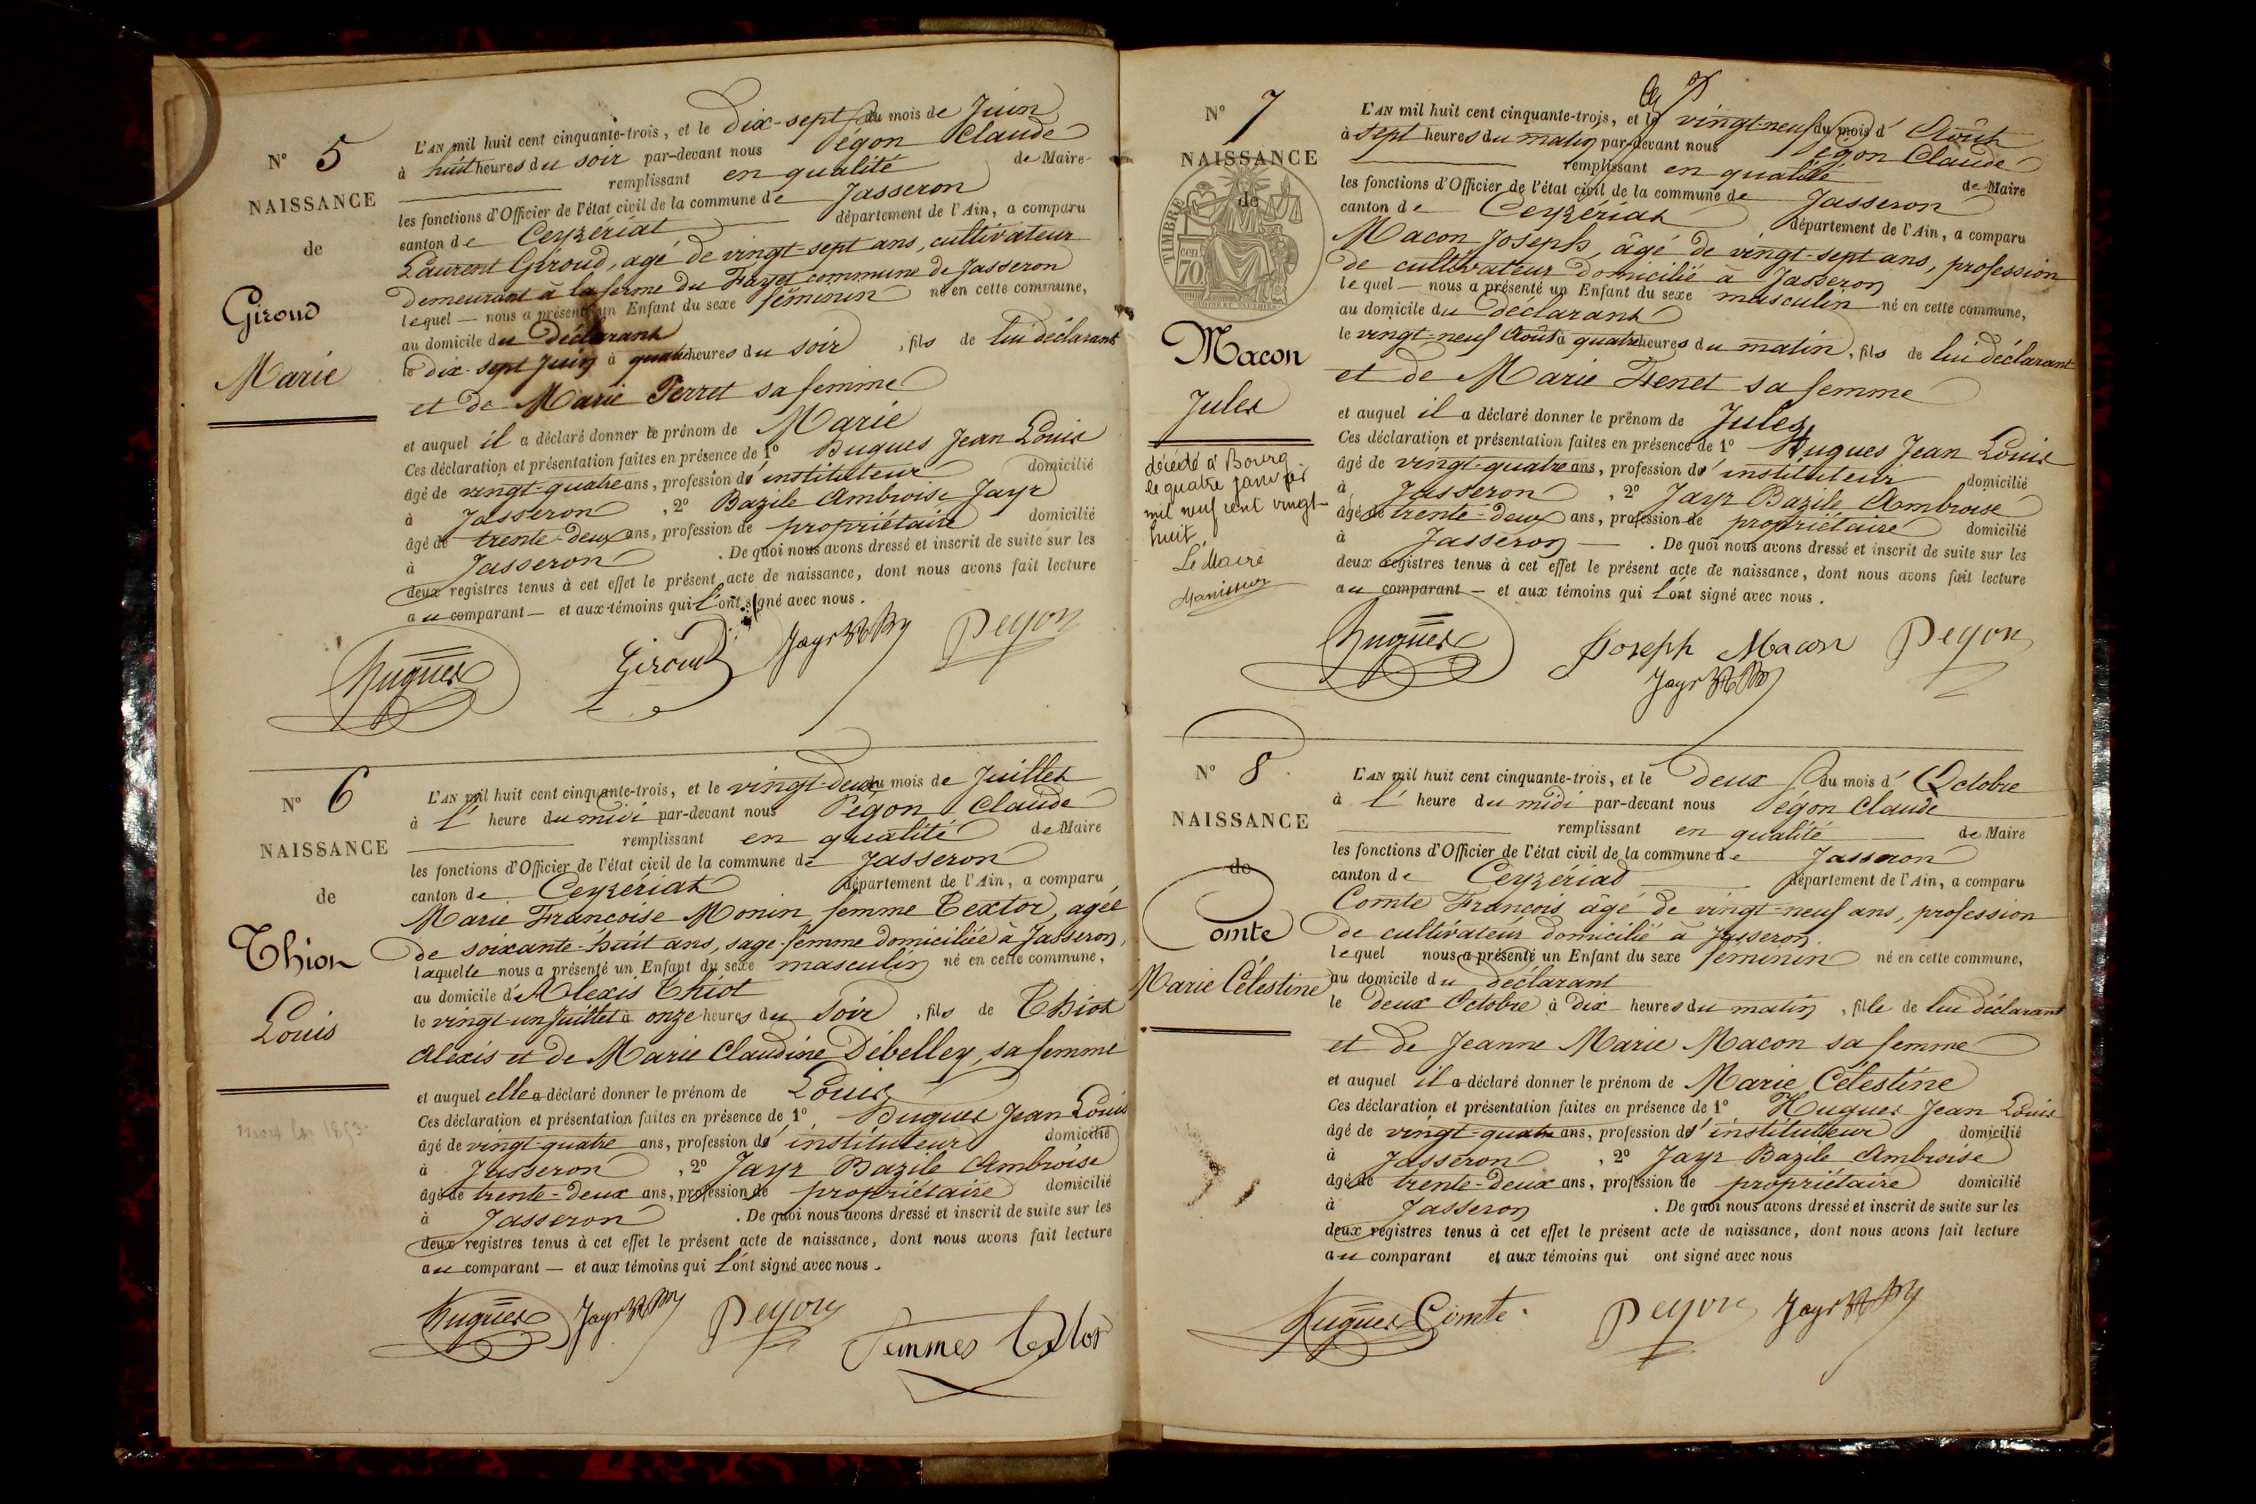 N° 5
NAISSANCE
de
Giroud
Marie
L'AN mil huit cent cinquante-trois, et le dix-sept du mois de Juin
à huit heures du soir par-devant nous Pégon Claude
remplissant en qualité de Maire
les fonctions d'Officier de l'état civil de la commune de Jasseron
canton de Ceyzériat département de l'Ain, a comparu
Laurent Giroud, agé de vingt-sept ans, cultivateur
Demeurant à la ferme du Fayet commune de Jasseron
lequel nous a présenté un Enfant du sexe féminin né en cette commune,
au domicile du Déclarant
le dix-sept Juin à quatre heures du soir, fils de lui déclarant
et de Marie Perret sa femme
et auquel il a déclaré donner le prénom de Marie
Ces déclaration et présentation faites en présence de 1° Hugues Jean Louis
âgé de vingt-quatre ans, profession d' instituteur domicilié
à Jasseron, 2° Bazile Ambroise Jayr
âgé de trente-deux ans, profession de propriétaire domicilié
à Jasseron. De quoi nous avons dressé et inscrit de suite sur les
deux registres tenus à cet effet le présent acte de naissance, dont nous avons fait lecture
au comparant — et aux témoins qui l'ont signé avec nous.
Hugues Giroud Jayr Pegon
N° 6
NAISSANCE
de
Thion
Louis
L'AN mil huit cent cinquante-trois, et le vingt-deux du mois de Juillet
à l' heure du midi par-devant nous Pégon Claude
remplissant en qualité de Maire
les fonctions d'Officier de l'état civil de la commune de Jasseron
canton de Ceyzériat département de l'Ain, a comparu
Marie Françoise Monin femme Textor, agée
de soixante-huit ans, sage-femme domiciliée à Jasseron,
laquelle nous a présenté un Enfant du sexe masculin né en cette commune,
au domicile d'Alexis Thiot
le vingt-un Juillet à onze heures du soir, fils de Thiot
Alexis et de Marie Claudine Débelley, sa femme
et auquel elle a déclaré donner le prénom de Louis
Ces déclaration et présentation faites en présence de 1° Hugues Jean Louis
âgé de vingt-quatre ans, profession d' instituteur domicilié
à Jasseron, 2° Jayr Bazile Ambroise
âgé de trente-deux ans, profession de propriétaire domicilié
à Jasseron. De quoi nous avons dressé et inscrit de suite sur les
deux registres tenus à cet effet le présent acte de naissance, dont nous avons fait lecture
au comparant — et aux témoins qui l'ont signé avec nous.
Hugues Jayr Pegon
femmes Textor
N° 7
NAISSANCE
de
TIMBRE
70
Macon
Jules
décédé à Bourg
le quatre janvier
mil neuf cent vingt-
huit.
Le Maire
L'AN mil huit cent cinquante-trois, et le vingt-neuf du mois d' Août
à sept heures du matin par-devant nous Pégon Claude
remplissant en qualité de Maire
les fonctions d'Officier de l'état civil de la commune de Jasseron
canton de Ceyzériat département de l'Ain, a comparu
Macon Joseph, âgé de vingt-sept ans, profession
de cultivateur domicilié à Jasseron
lequel — nous a présenté un Enfant du sexe masculin né en cette commune,
au domicile du déclarant
le vingt-neuf Août à quatre heures du matin, fils de lui déclarant
et de Marie Fenet sa femme
et auquel il a déclaré donner le prénom de Jules,
Ces déclaration et présentation faites en présence de 1° Hugues Jean Louis
âgé de vingt-quatre ans, profession d' instituteur domicilié
à Jasseron, 2° Jayr Bazile Ambroise
âgé de trente-deux ans, profession de propriétaire domicilié
à Jasseron — . De quoi nous avons dressé et inscrit de suite sur les
deux registres tenus à cet effet le présent acte de naissance, dont nous avons fait lecture
au comparant — et aux témoins qui l'ont signé avec nous.
Hugues Joseph Macon Pegon
Jayr
N° 8
NAISSANCE
de
Comte
Marie Célestine
L'AN mil huit cent cinquante-trois, et le deux du mois d' Octobre
à l' heure du midi par-devant nous Pégon Claude
remplissant en qualité de Maire
les fonctions d'Officier de l'état civil de la commune de Jasseron
canton de Ceyzériat département de l'Ain, a comparu
Comte François âgé de vingt-neuf ans, profession
de cultivateur domicilié à Jasseron.
lequel nous a présenté un Enfant du sexe féminin né en cette commune,
au domicile du déclarant
le deux Octobre à dix heures du matin, fille de lui déclarant
et de Jeanne Marie Macon sa femme
et auquel il a déclaré donner le prénom de Marie Célestine
Ces déclaration et présentation faites en présence de 1° Hugues Jean Louis
âgé de vingt-quatre ans, profession d' instituteur domicilié
à Jasseron, 2° Jayr Bazile Ambroise
âgé de trente-deux ans, profession de propriétaire domicilié
à Jasseron. De quoi nous avons dressé et inscrit de suite sur les
deux registres tenus à cet effet le présent acte de naissance, dont nous avons fait lecture
au comparant et aux témoins qui ont signé avec nous
Hugues Comte Pegon Jayr